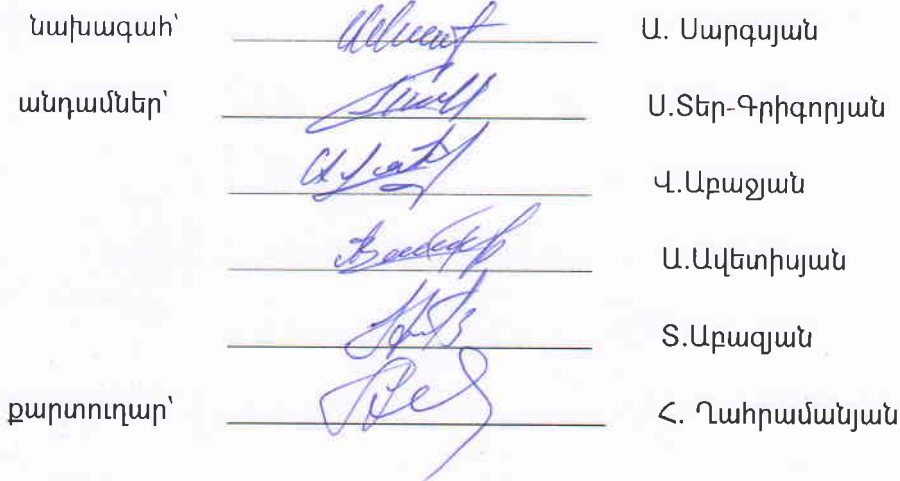 նախագահ՝ Ա. Սարգսյան
անդամներ՝ Ս.Տեր-Գրիգորյան
Վ.Աբաջյան
Ա.Ավետիսյան
Տ.Աբազյան
քարտուղար՝ Հ. Ղահրամանյան